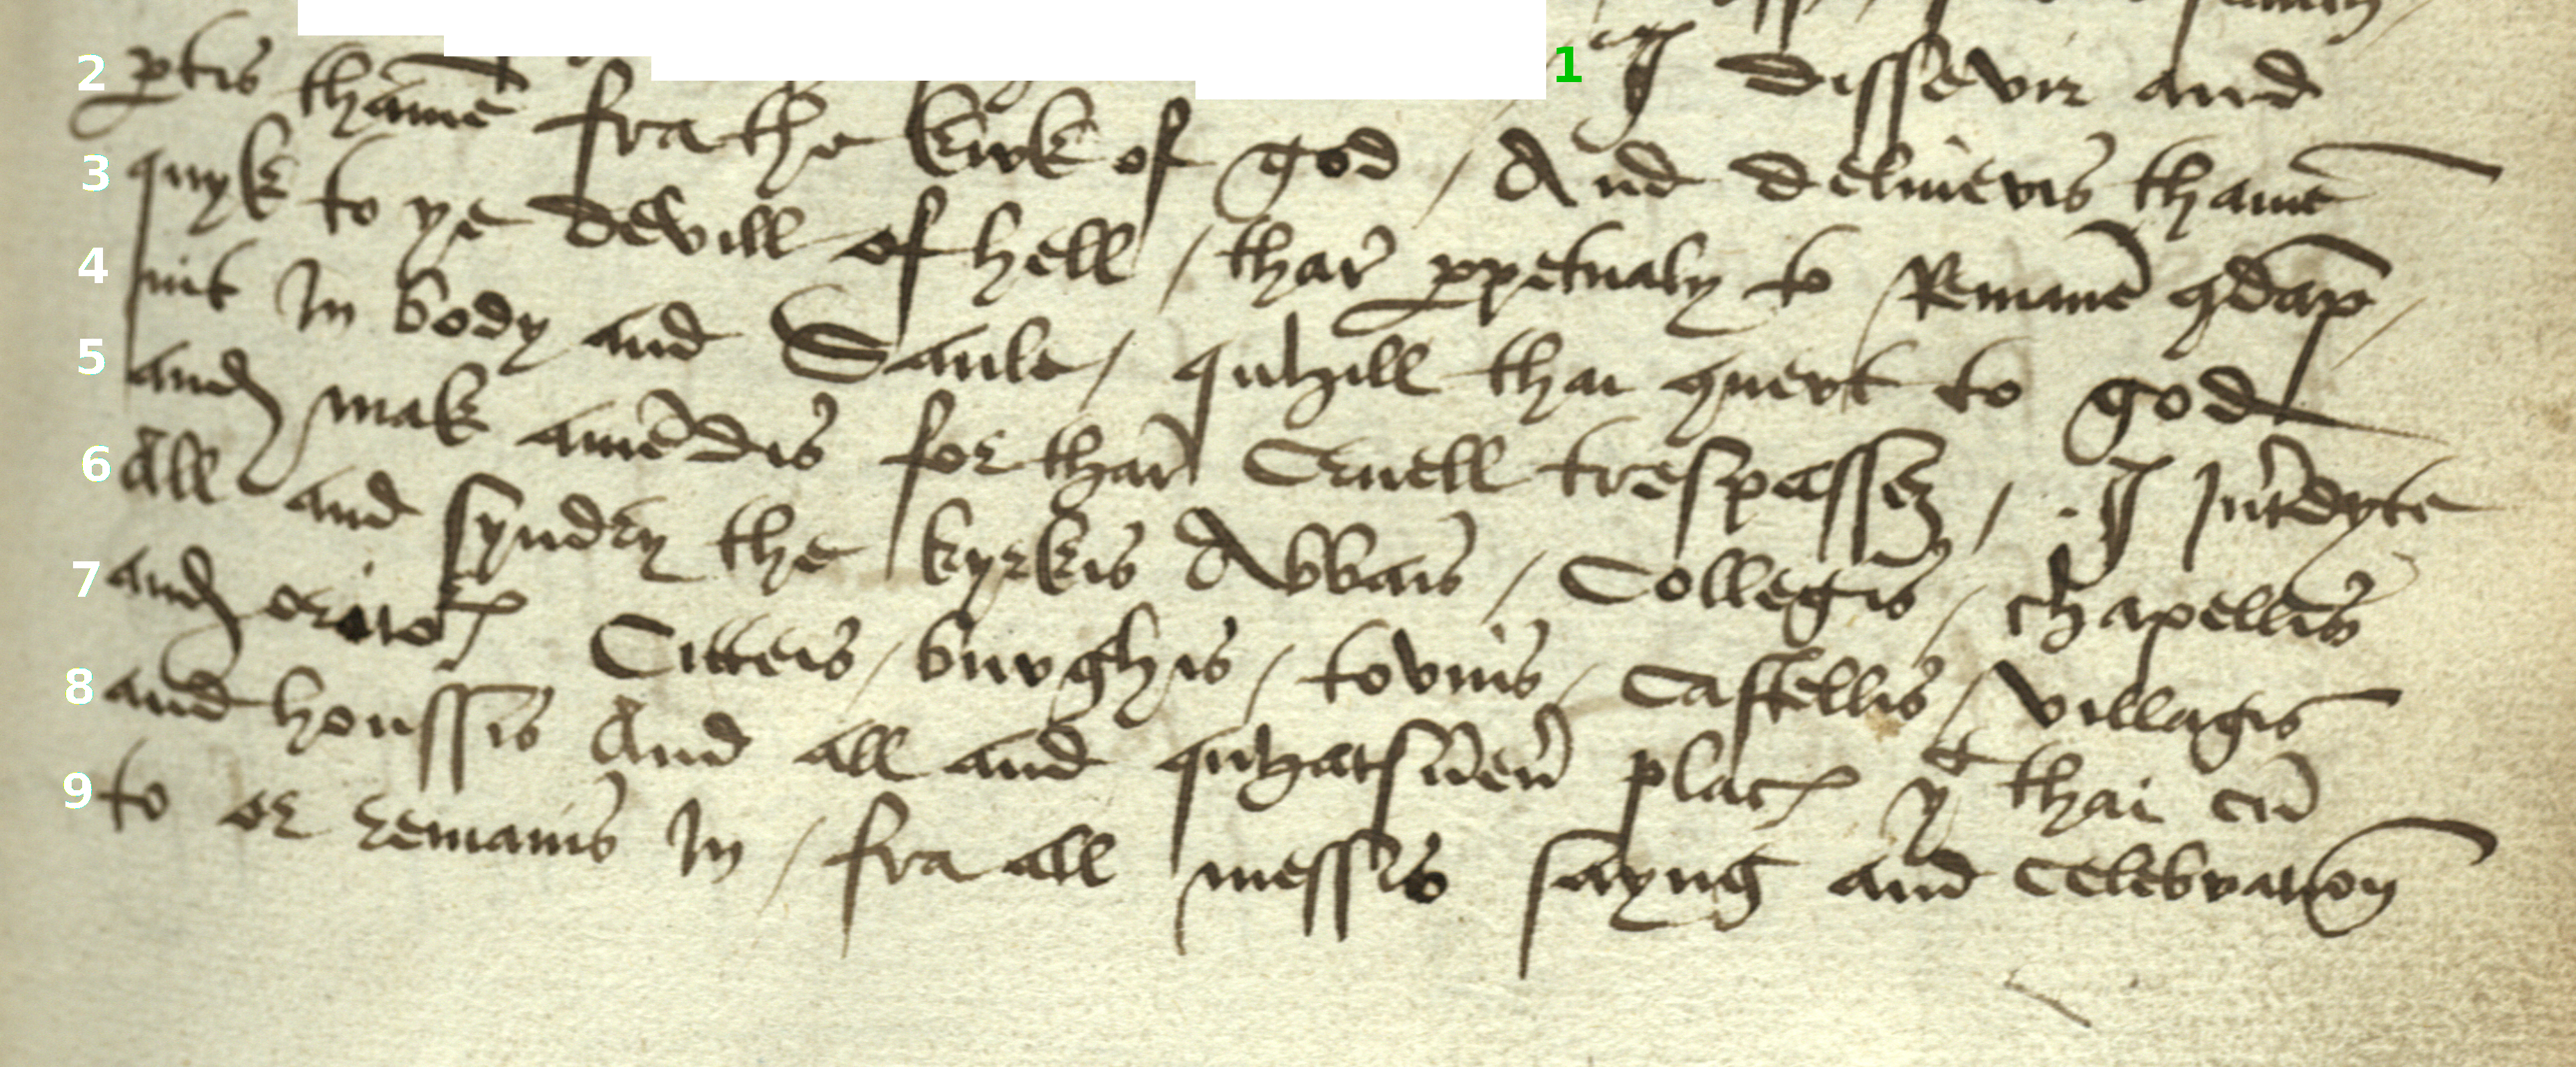 I dissevir and
ptis thame fra the kirk of god / And deliueris thame
quyk to ye devill of hell / thar ppetualy to Remane 9dāp
nit In body and Saule / quhill thai 9uert to god
and mak amēdis for thar Cruell trespassez / I Int'dyte
All and syndry the kyrkis Abbais / Collegis / chapellis
and orato'is Citteis / burghis / tovnis / Castellis / villagis
and houssis And all and quhatsūeu' placis yt thai cū
to or remanis In / fra all messis sayng and celebration